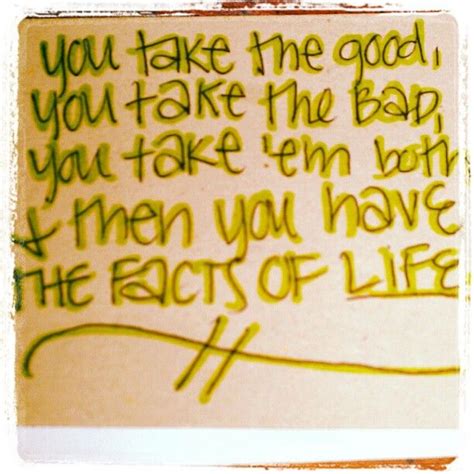 you take the good,
you take the BAD,
you take 'em both
& then you have
THE FACTS OF LIFE